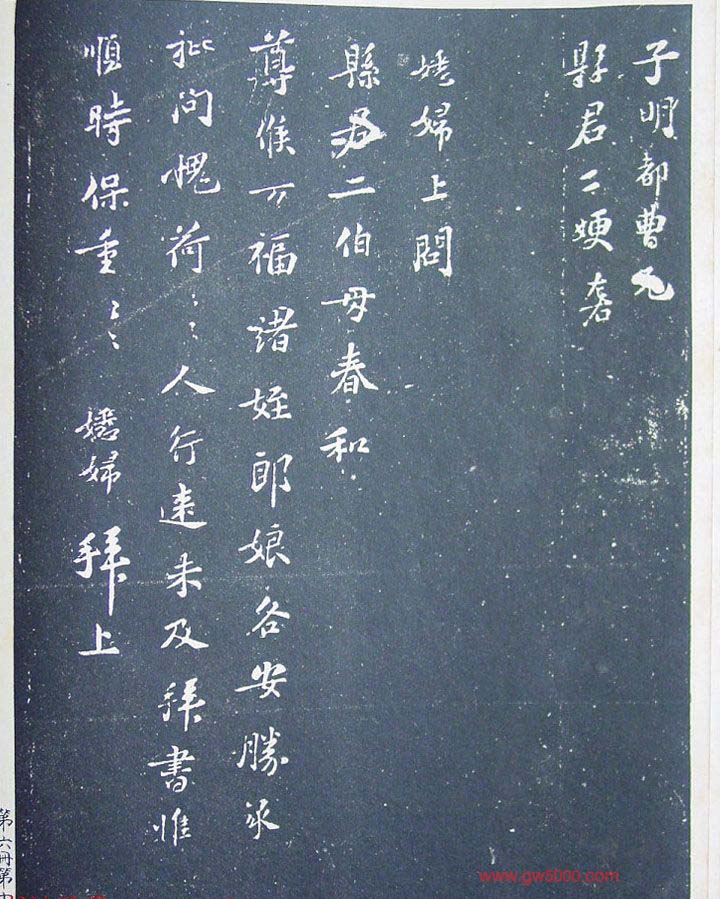 子明都曹兄
縣君二嫂 砻
嬌婦上問
縣君二伯母春和
尊候万福諸姪郎娘各安勝承
批問愧荷〻人行速未及拜書惟
順時保重〻嬌婦拜上
第六冊第
www.gw5000.com